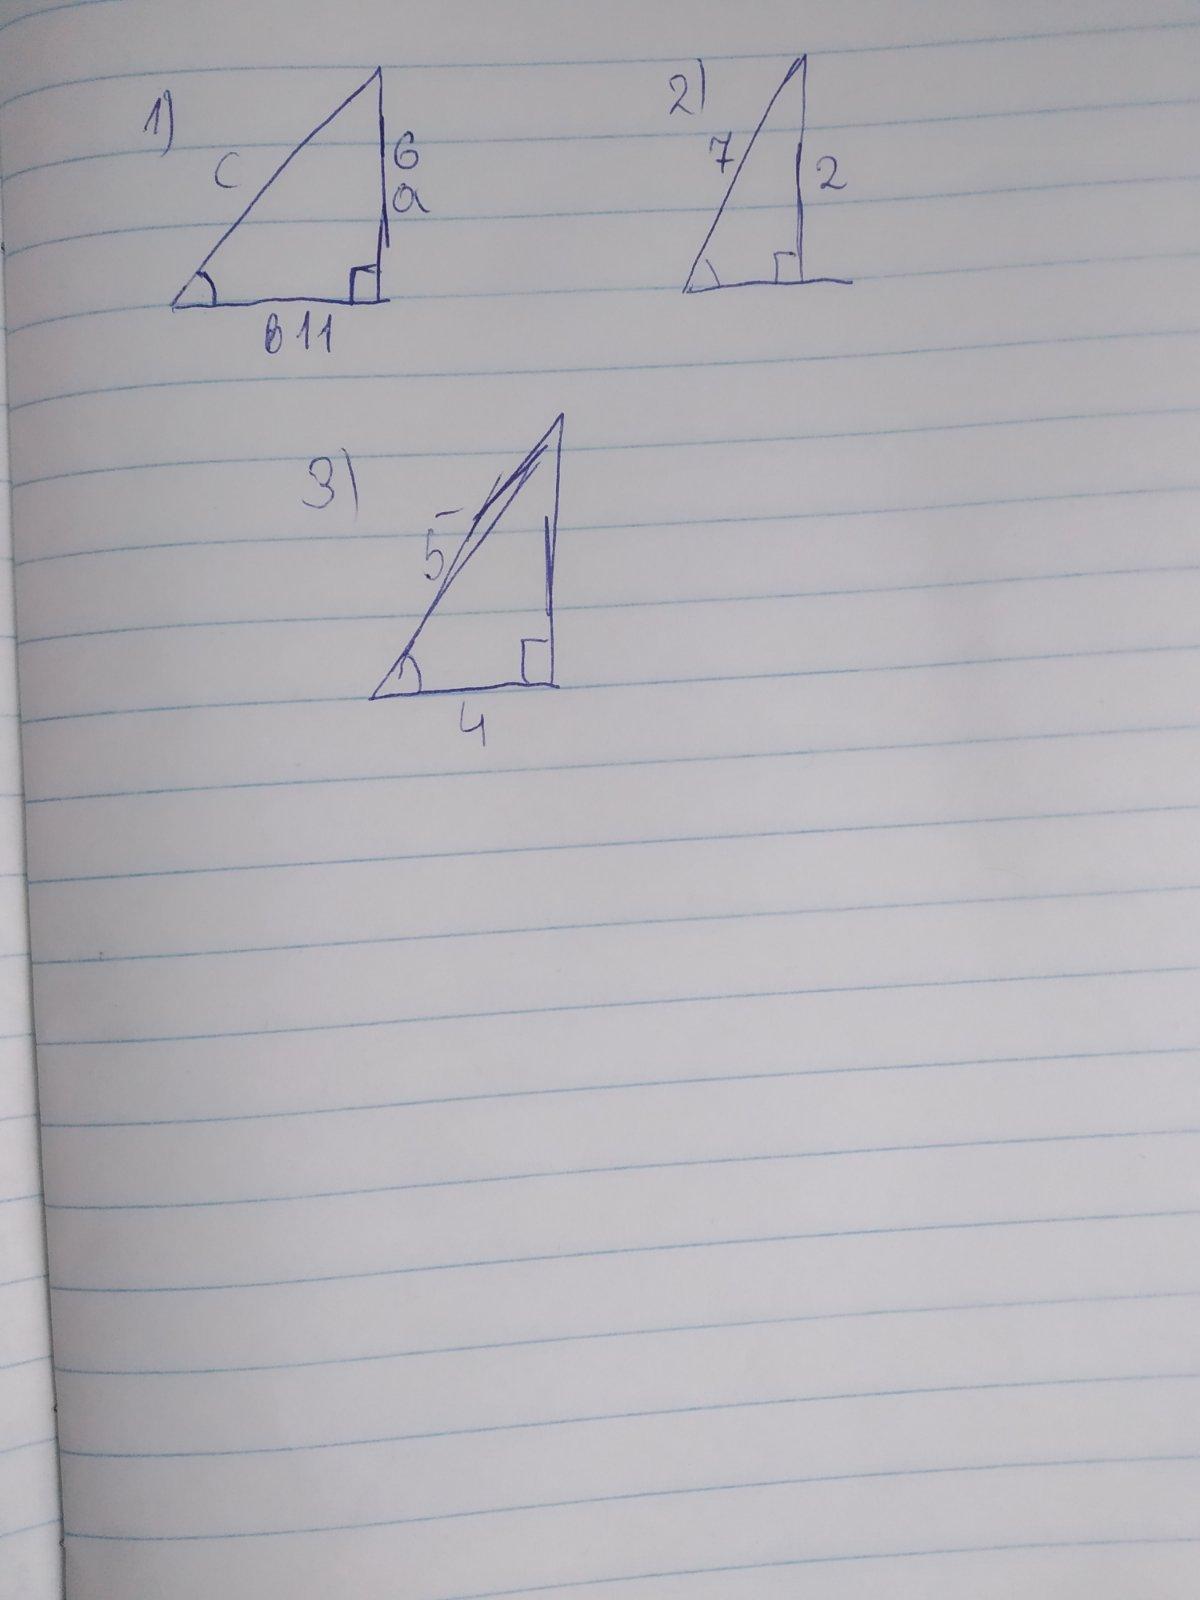 1)
c
6
a
в 11
2)
7
2
3)
5
4